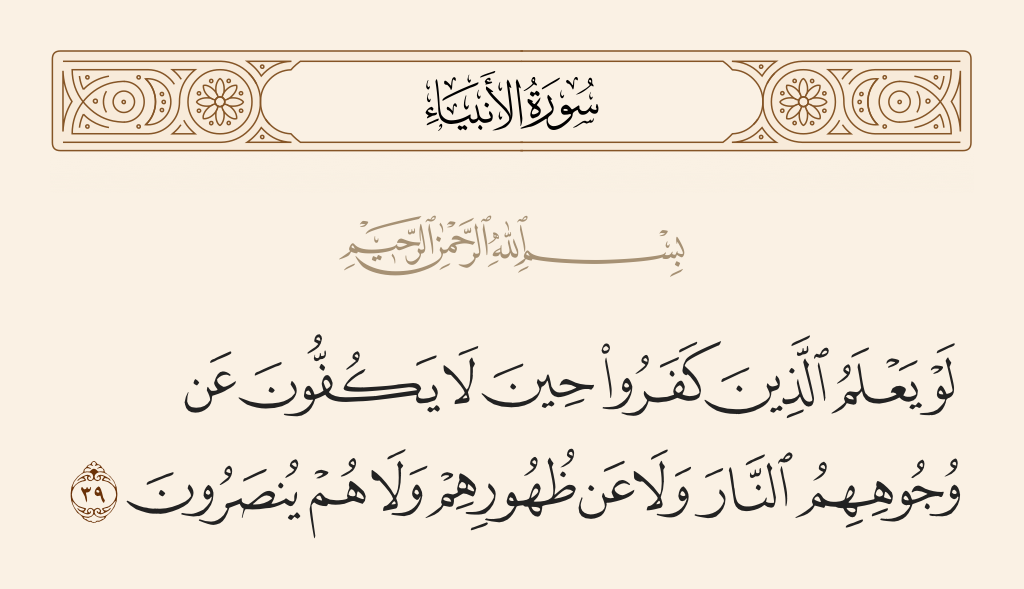 سُورَةُ الأَنبِيَاءِ
بِسْمِ ٱللَّهِ ٱلرَّحْمَٰنِ ٱلرَّحِيمِ
لَوْ يَعْلَمُ ٱلَّذِينَ كَفَرُوا۟ حِينَ لَا يَكُفُّونَ عَن
وُجُوهِهِمُ ٱلنَّارَ وَلَا عَن ظُهُورِهِمْ وَلَا هُمْ يُنصَرُونَ ٣٩